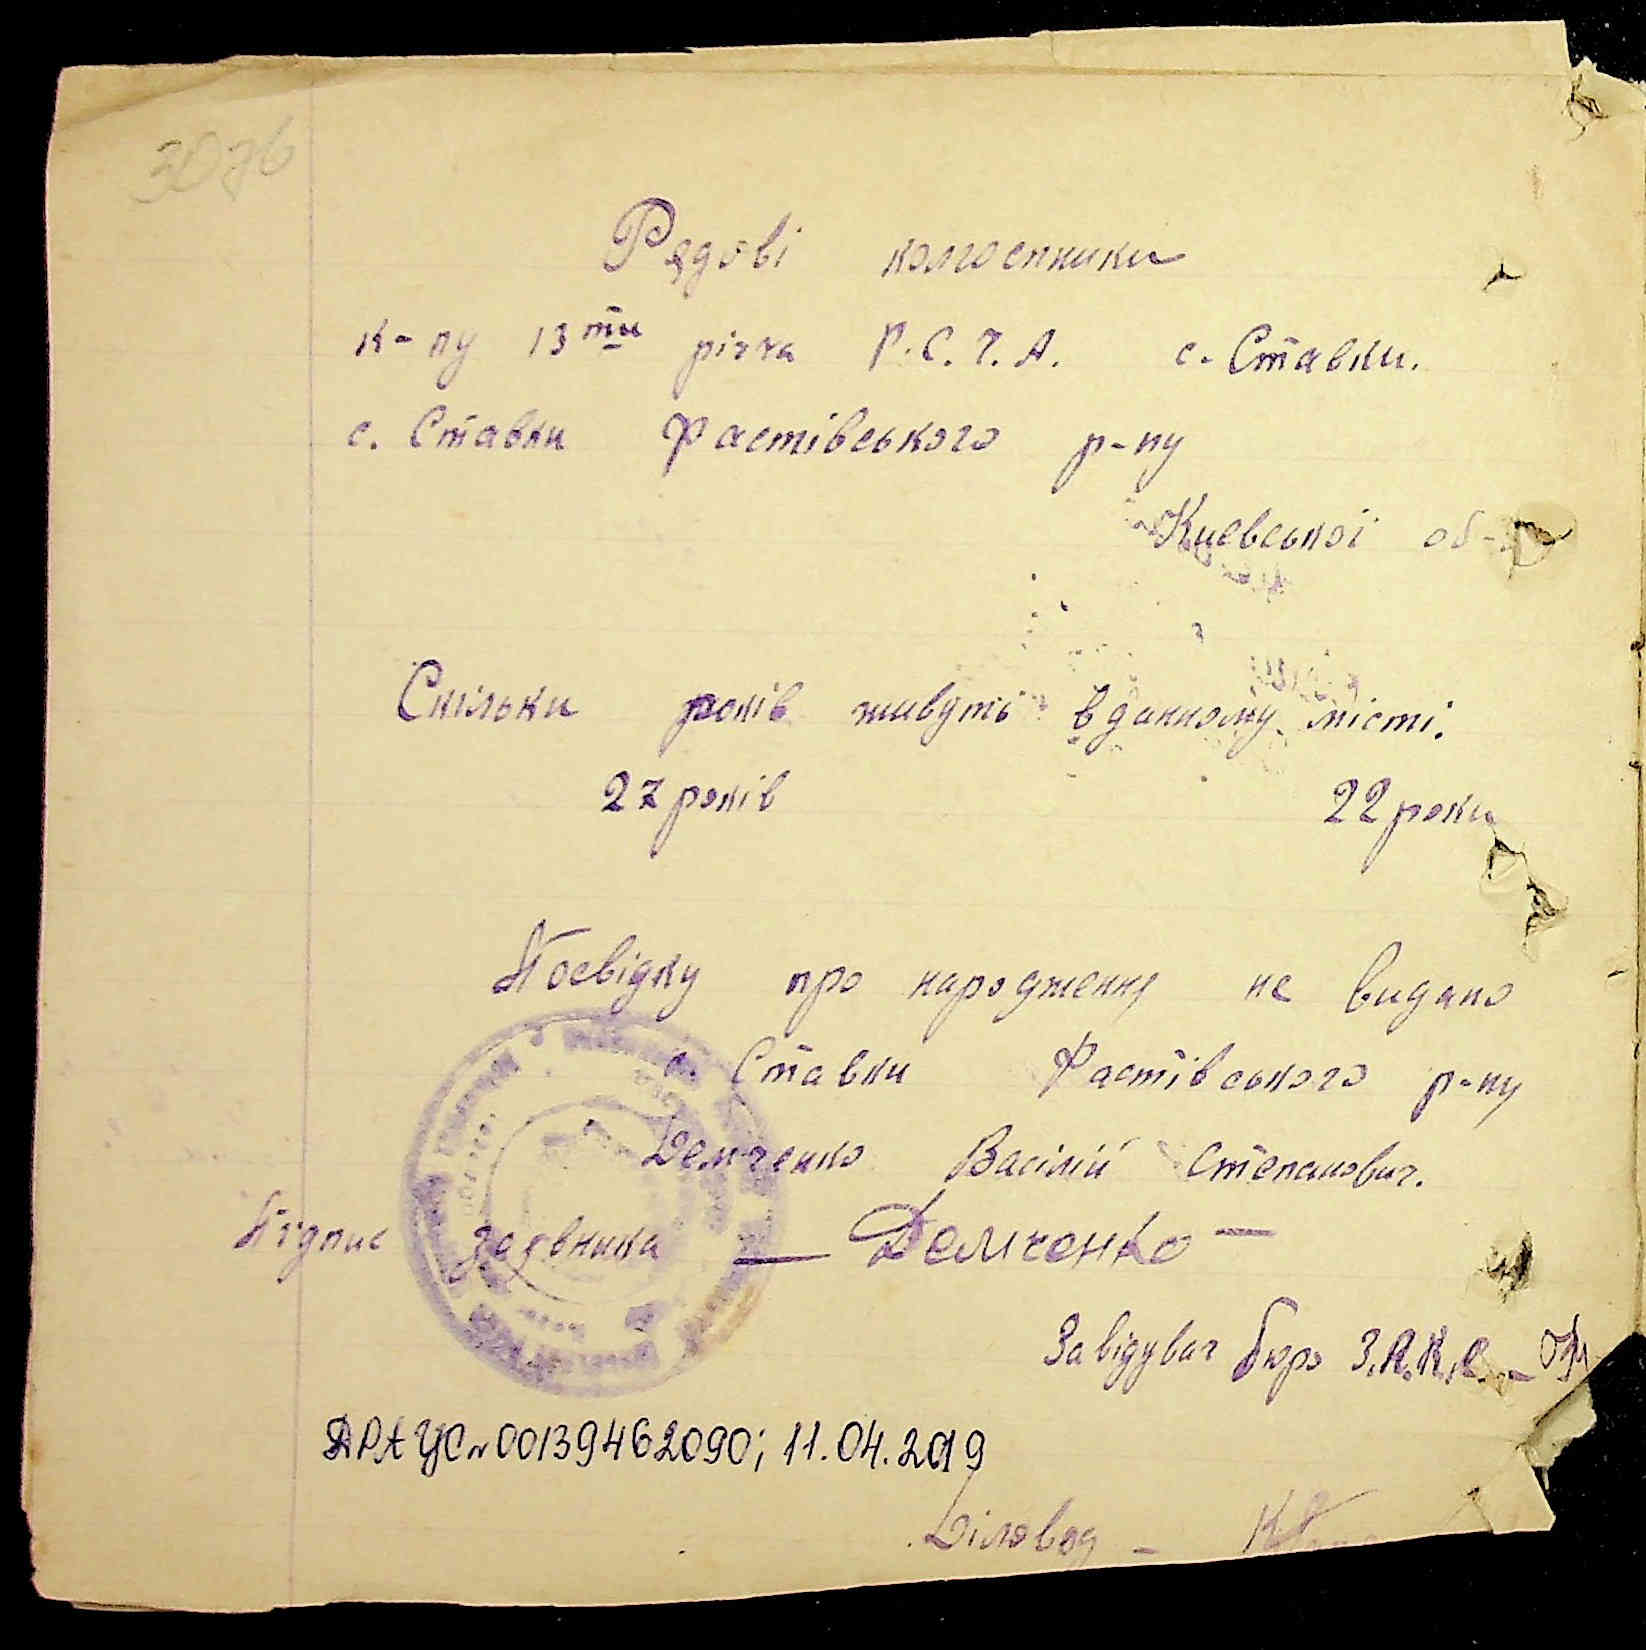 3076
Рядові колгоспники
к-пу 13ти річча Р.С.Ч.А. с. Ставки.
с. Ставки Фастівського р-ну
Києвської об-
Скільки років живуть в данному місті.
27 років 22 роки
Посвідку про народження не видано
с. Ставки Фастівського р-ну
Демченко Василій Степанович.
Підпис заявника — Демченко —
Завідувач бюро З.А.К.С. —
ДРАЦС № 00139462090; 11.04.2019
Діловод —